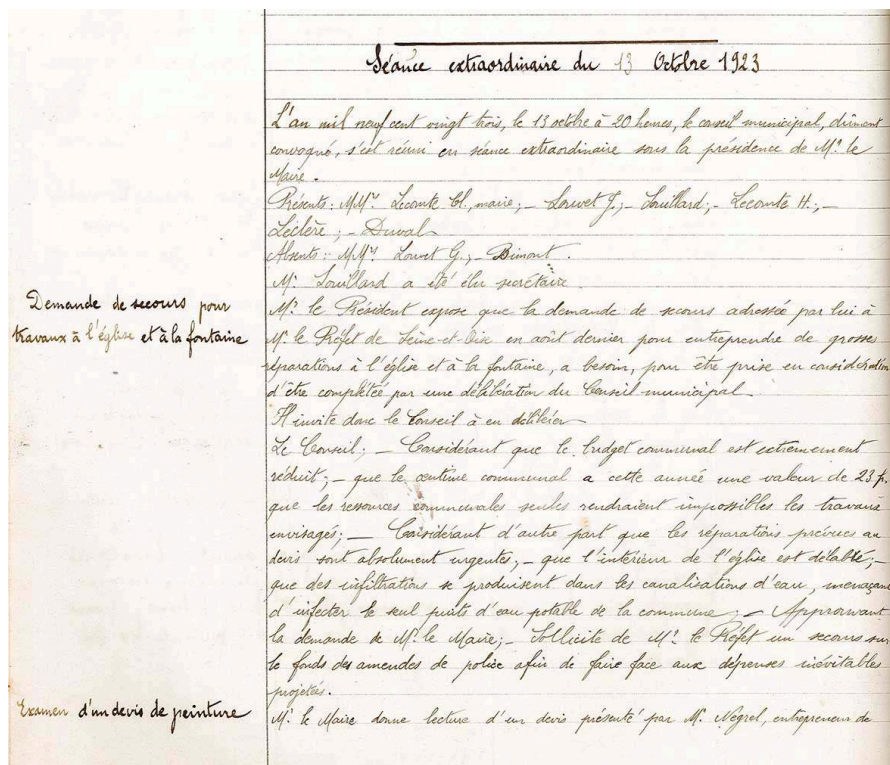 Séance extraordinaire du 13 Octobre 1923
L'an mil neuf cent vingt trois, le 13 octobre à 20 heures, le conseil municipal, dûment
convoqué, s'est réuni en séance extraordinaire sous la présidence de Mr. le
Maire.
Présents : MMrs Lecomte Cl., maire, - Louvet J., - Souillard, - Lecomte H., -
Leclère, - Duval
Absents : MMrs Louvet G., - Bimont.
Mr. Souillard a été élu secrétaire.
Demande de secours pour
travaux à l'église et à la fontaine
Mr. le Président expose que la demande de secours adressée par lui à
Mr. le Préfet de Seine-et-Oise en août dernier pour entreprendre de grosses
réparations à l'église et à la fontaine, a besoin, pour être prise en considération
d'être complétée par une délibération du Conseil municipal.
Il invite donc le Conseil à en délibérer
Le Conseil ; - Considérant que le budget communal est extrêmement
réduit ; - que le centime communal a cette année une valeur de 23 f.
que les ressources communales seules rendraient impossibles les travaux
envisagés ; - Considérant d'autre part que les réparations prévues au
devis sont absolument urgentes, - que l'intérieur de l'église est délabré, -
que des infiltrations se produisent dans les canalisations d'eau, menaçant
d'infecter le seul puits d'eau potable de la commune ; - Approuvant
la demande de Mr. le Maire ; - Sollicite de Mr. le Préfet un secours sur
le fonds des amendes de police afin de faire face aux dépenses inévitables
projetées.
Examen d'un devis de peinture
Mr. le Maire donne lecture d'un devis présenté par Mr. Négrel, entrepreneur de